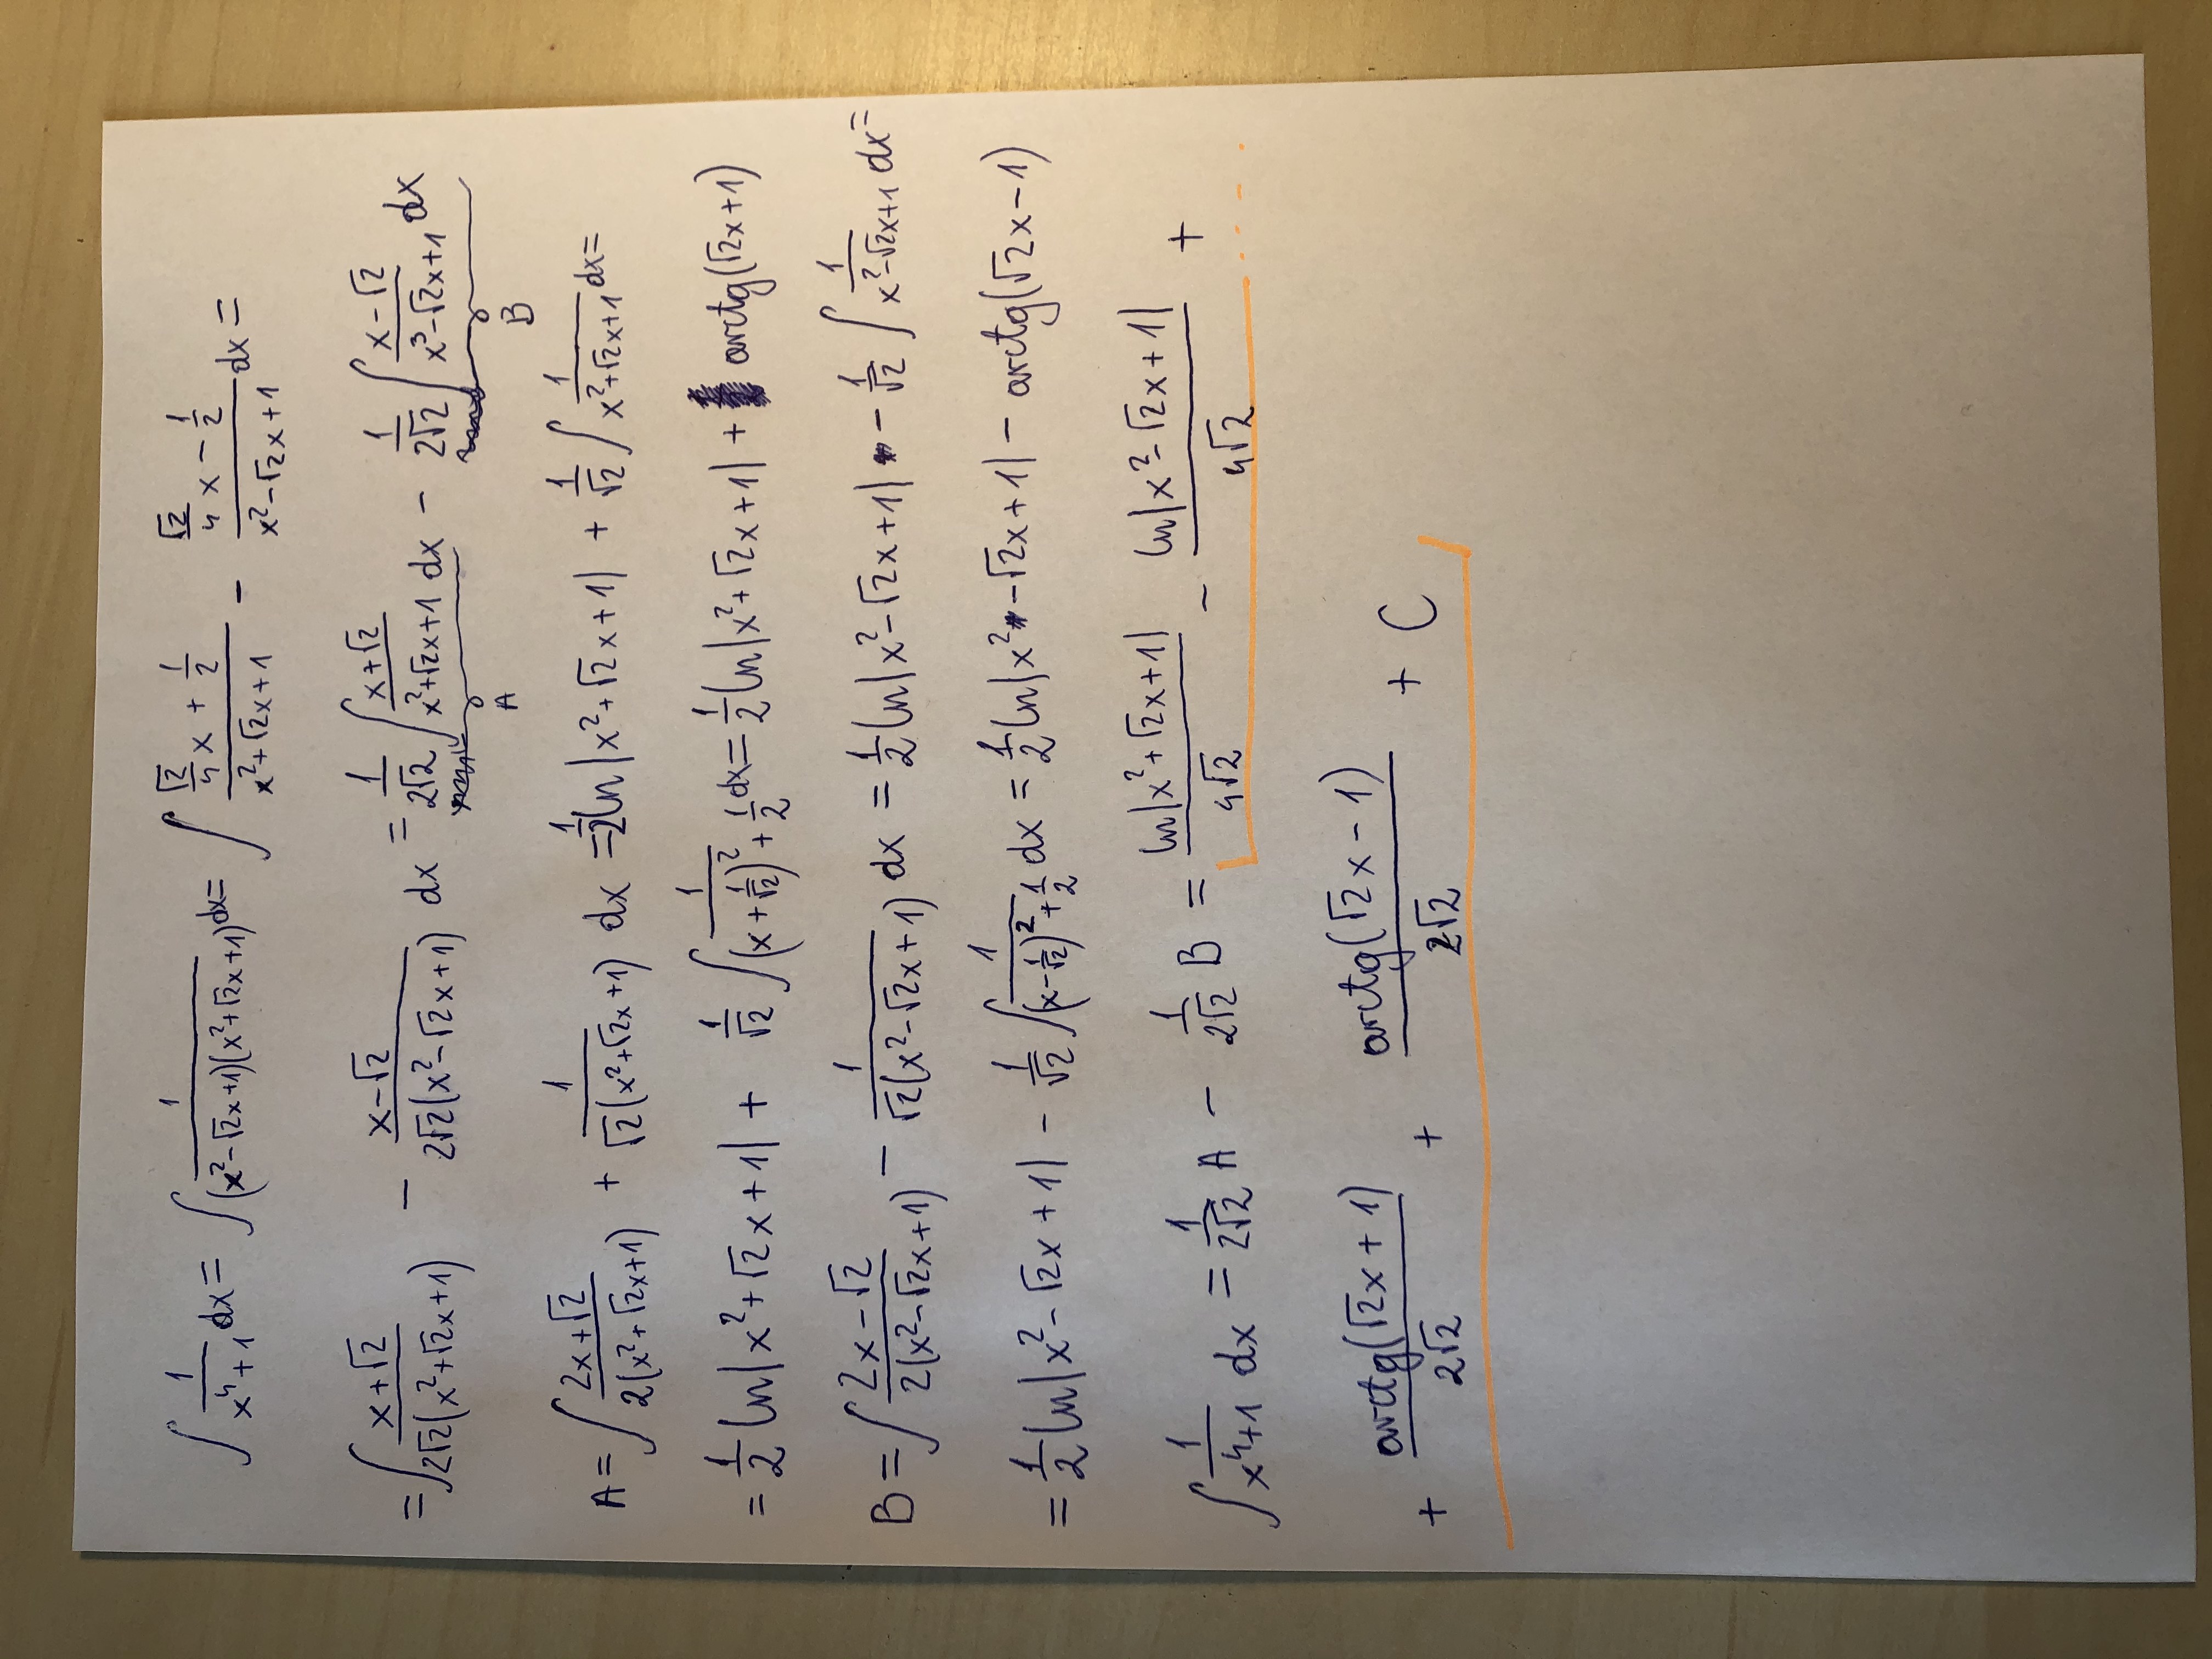 ∫ 1/(x⁴+1) dx = ∫ 1/((x²-√2x+1)(x²+√2x+1)) dx = ∫ (√2/4 x + 1/2)/(x²+√2x+1) - (√2/4 x - 1/2)/(x²-√2x+1) dx =
= ∫ (x+√2)/(2√2(x²+√2x+1)) - (x-√2)/(2√2(x²-√2x+1)) dx = 1/(2√2) ∫ (x+√2)/(x²+√2x+1) dx - 1/(2√2) ∫ (x-√2)/(x³-√2x+1) dx
A B
A = ∫ (2x+√2)/(2(x²+√2x+1)) + 1/(√2(x²+√2x+1)) dx = 1/2 ln|x²+√2x+1| + 1/√2 ∫ 1/(x²+√2x+1) dx =
= 1/2 ln|x²+√2x+1| + 1/√2 ∫ 1/((x+1/√2)²+1/2) dx = 1/2 ln|x²+√2x+1| + arctg(√2x+1)
B = ∫ (2x-√2)/(2(x²-√2x+1)) - 1/(√2(x²-√2x+1)) dx = 1/2 ln|x²-√2x+1| - 1/√2 ∫ 1/(x²-√2x+1) dx =
= 1/2 ln|x²-√2x+1| - 1/√2 ∫ 1/((x-1/√2)²+1/2) dx = 1/2 ln|x²-√2x+1| - arctg(√2x-1)
∫ 1/(x⁴+1) dx = 1/(2√2) A - 1/(2√2) B = ln|x²+√2x+1|/(4√2) - ln|x²-√2x+1|/(4√2) +
+ arctg(√2x+1)/(2√2) + arctg(√2x-1)/(2√2) + C